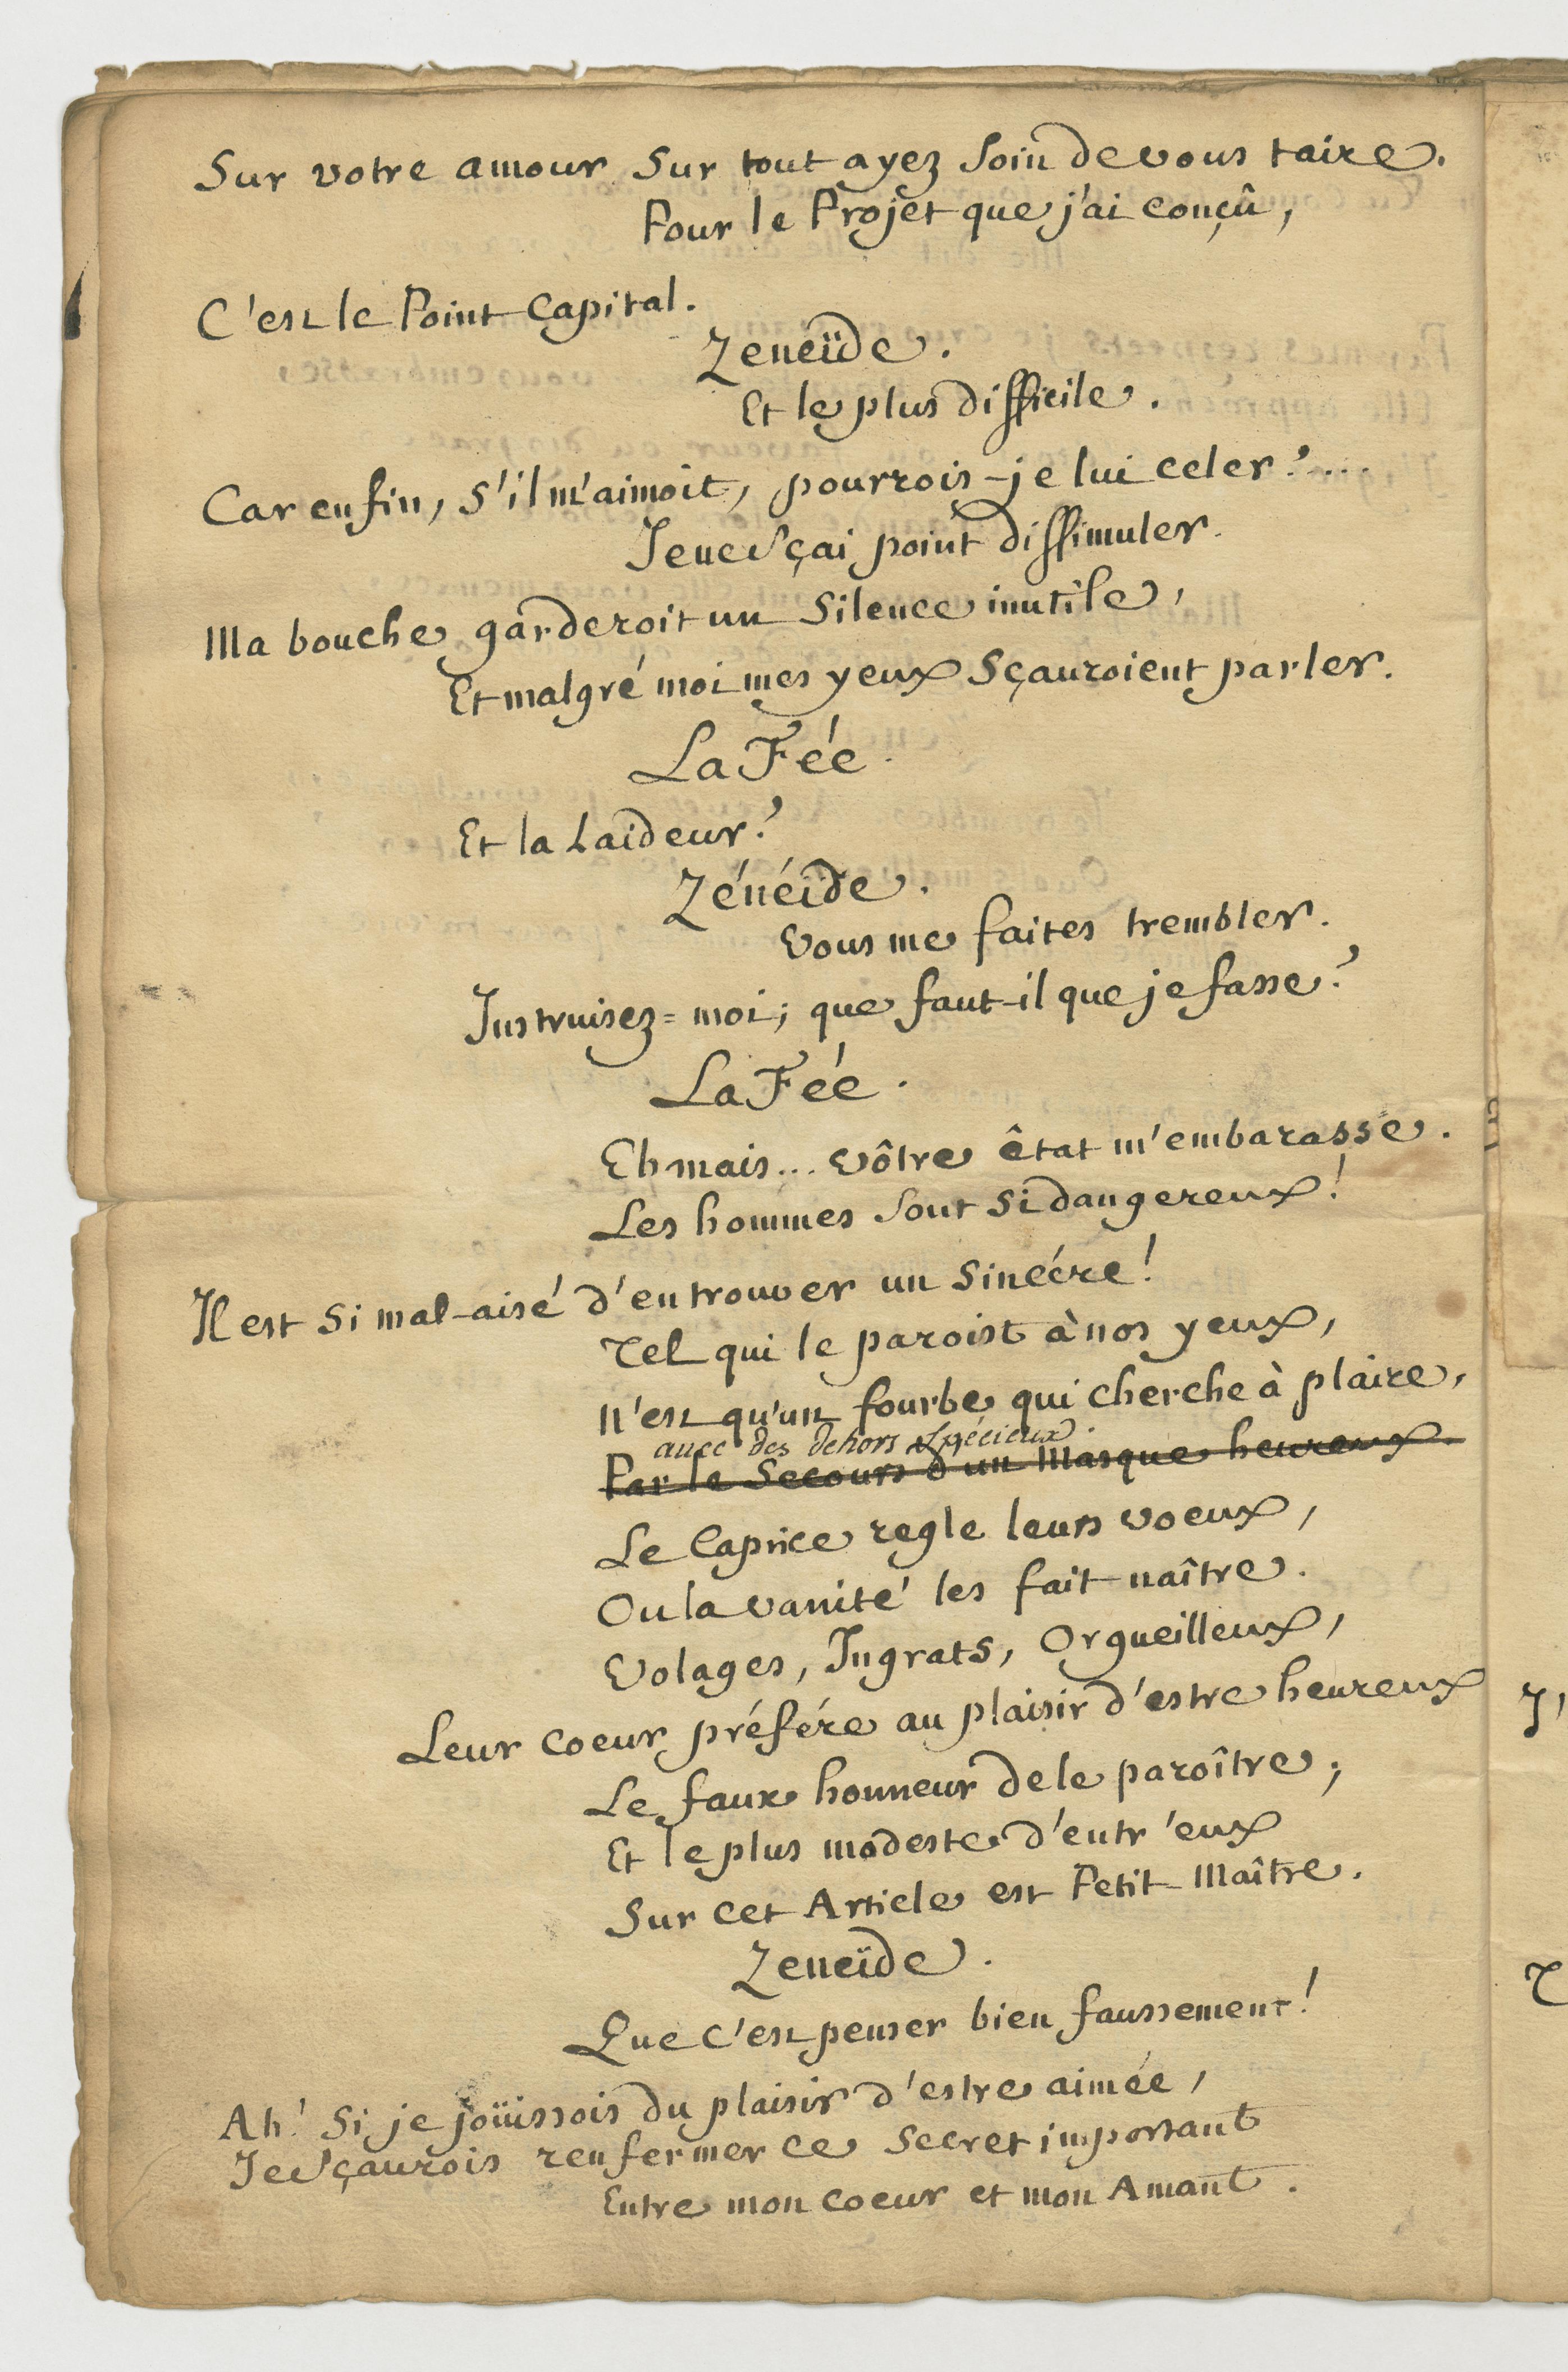 Sur votre amour Sur tout ayez soin de vous taire.
Pour le Projet que j'ai conçû,
C'est le Point Capital.
Zeneïde.
Et le plus difficile.
Car enfin, s'il m'aimoit, pourrois-je lui celer?....
Je ne sçai point dissimuler.
Ma bouche garderoit un Silence inutile,
Et malgré moi mes yeux Sçauroient parler.
La Fée.
Et la Laideur?
Zénéide.
Vous me faites trembler.
Instruisez=moi; que faut-il que je fasse?
La Fée.
Eh mais... vôtre êtat m'embarasse.
Les hommes sont si dangereux!
Il est si mal-aisé d'en trouver un sincére!
Tel qui le paroist à nos yeux,
N'est qu'un fourbe qui cherche à plaire,
avec des dehors spécieux.
Par le Secours d'un Masque heureux.
Le Caprice regle leurs voeux,
Ou la vanité les fait naître.
Volages, Ingrats, Orgueilleux,
Leur coeur préfére au plaisir d'estre heureux
Le faux honneur de le paroître;
Et le plus modeste d'entr'eux
Sur cet Article est Petit Maître.
Zeneïde.
Que c'est penser bien faussement!
Ah! Si je joüissois du plaisir d'estre aimée,
Je sçaurois renfermer ce Secret important
Entre mon coeur et mon Amant.